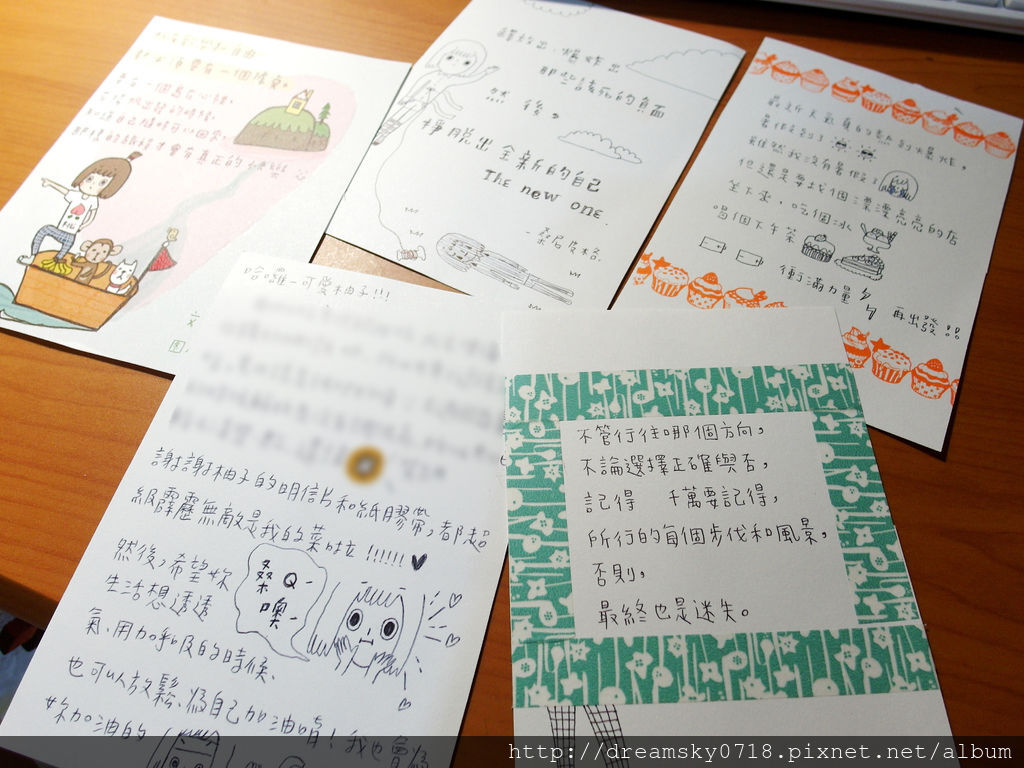 要有一個島在心裡，
知道自己隨時可以回家，
那樣的旅程才會有真正的快樂
釋放出、爆炸出
那些該死的負面
然後。
掙脫出全新的自己
The new one.
-桑尼皮格.
最近天氣真的熱到爆炸，
暑假到了
雖然我沒有暑假了
但還是要找個漂漂亮亮的店
坐下來，吃個冰
喝個下午茶
衝滿力量
再出發!!
哈囉~可愛柚子!!!
謝謝柚子的明信片和紙膠帶，都超
級霹靂無敵是我的菜啦!!!!!!
然後，希望妳
生活想透透
氣、用力呼吸的時候、
也可以放鬆、為自己加油唷! 我也會為
妳加油的
桑Q~
噢~
不管行往哪個方向，
不論選擇正確與否，
記得 千萬要記得，
所行的每個步伐和風景，
否則，
最終也是迷失。
http://dreamsky0718.pixnet.net/album